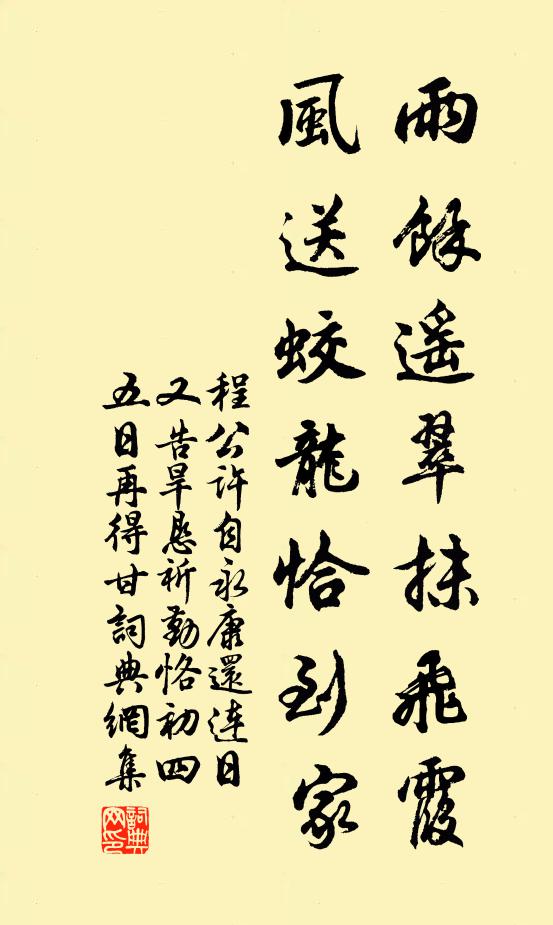 雨餘遥翠抹飛霞
風送蛟龍恰到家
程公許自永康還连日
又告旱恳祈勤恪初四
五日再得甘詞典網集
詞典网印